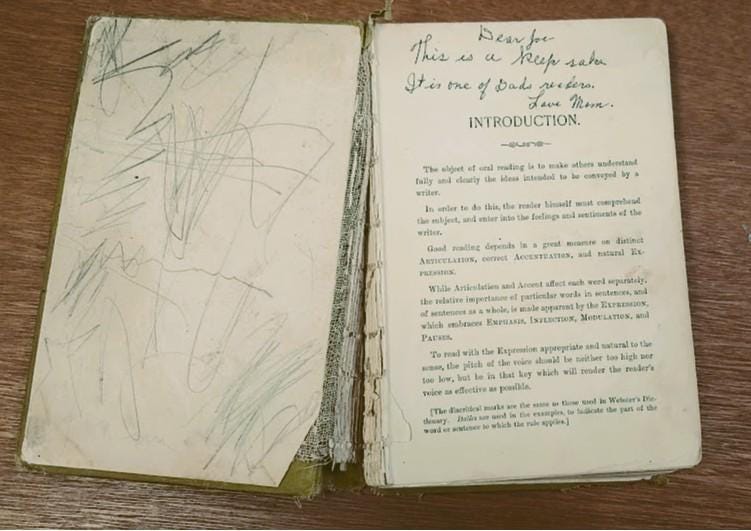 Dear Joe
This is a keep sake
It is one of Dads readers.
Love Mom.
INTRODUCTION.
The object of oral reading is to make others understand
fully and clearly the ideas intended to be conveyed by a
writer.
In order to do this, the reader himself must comprehend
the subject, and enter into the feelings and sentiments of the
writer.
Good reading depends in a great measure on distinct
ARTICULATION, correct ACCENTUATION, and natural EX-
PRESSION.
While Articulation and Accent affect each word separately,
the relative importance of particular words in sentences, and
of sentences as a whole, is made apparent by the EXPRESSION,
which embraces EMPHASIS, INFLECTION, MODULATION, and
PAUSES.
To read with the Expression appropriate and natural to the
sense, the pitch of the voice should be neither too high nor
too low, but be in that key which will render the reader's
voice as effective as possible.
[The diacritical marks are the same as those used in Webster's Dic-
tionary. Italics are used in the examples, to indicate the part of the
word or sentence to which the rule applies.]